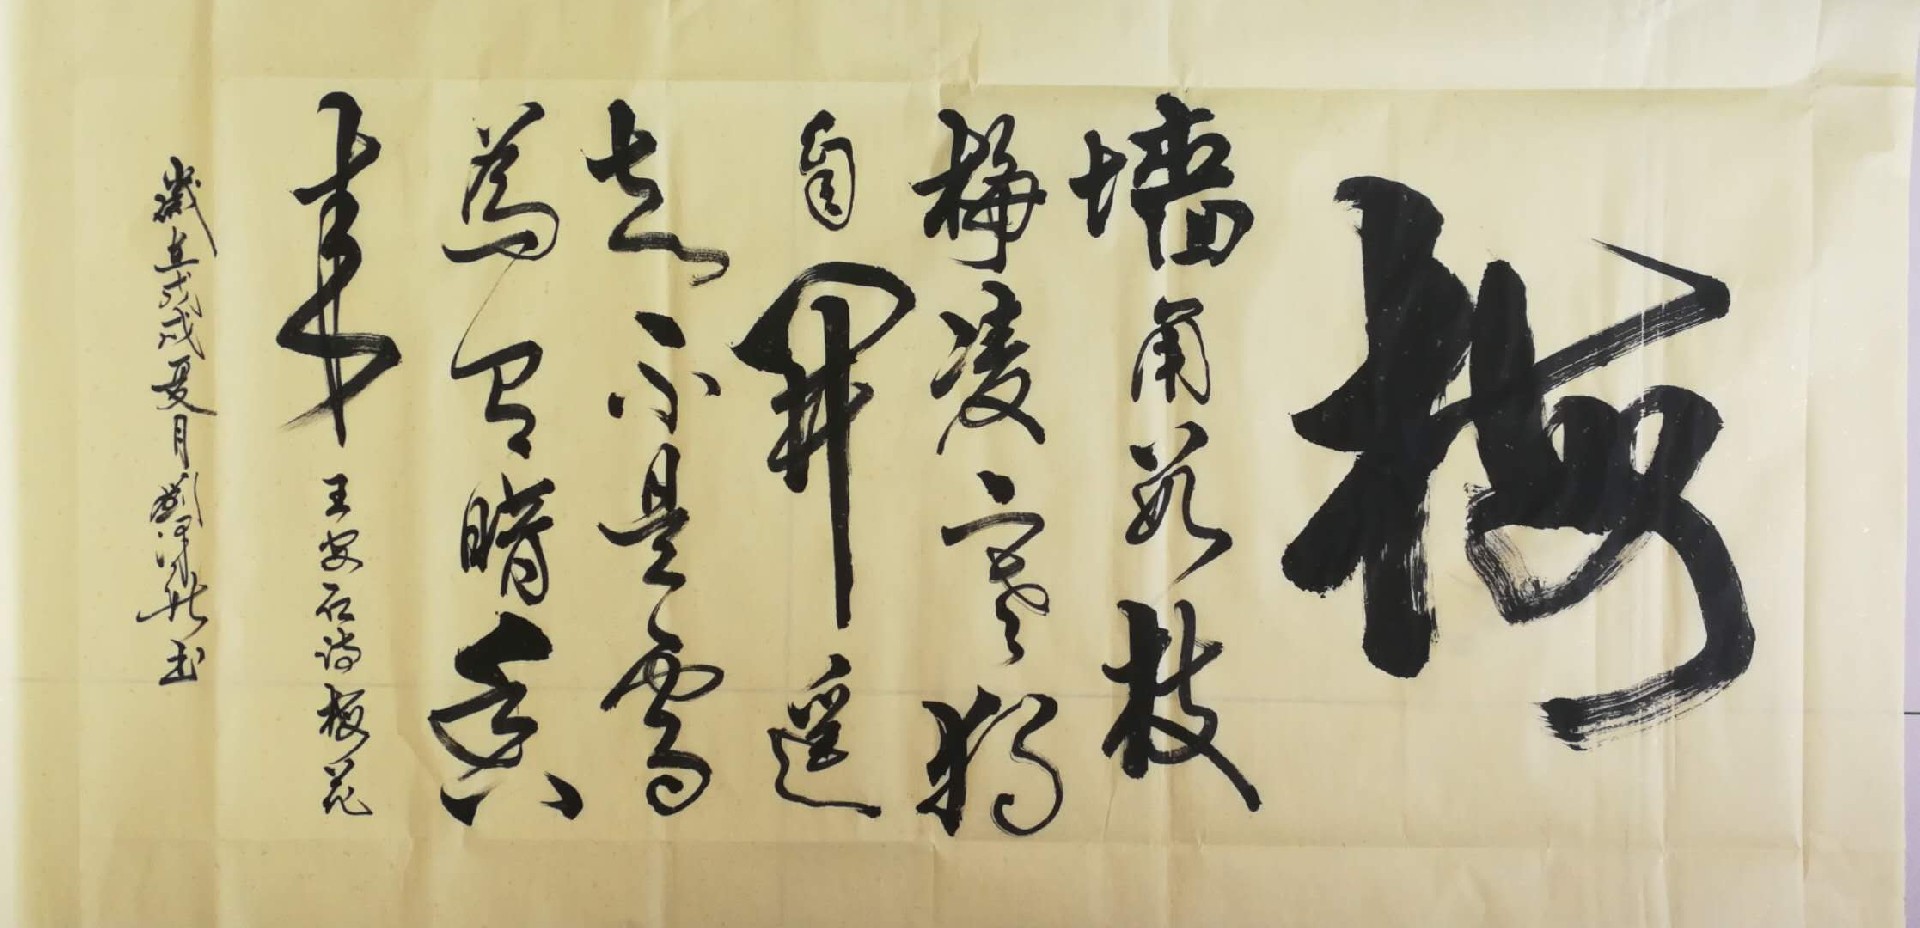 梅
墙角数枝
梅凌寒独
自開遥
知不是雪
為有暗香
来
王安石诗梅花
歲在戊戌夏月劉泽书